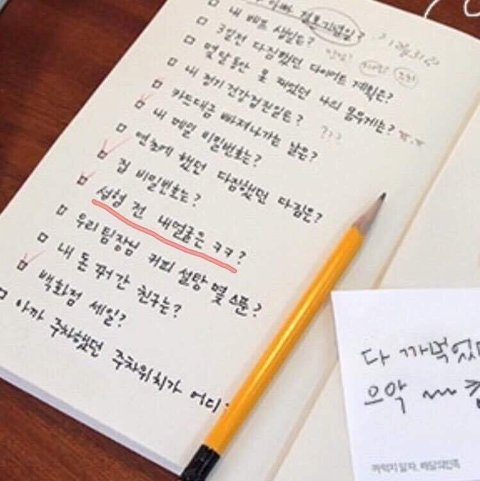 아빠 결혼기념일?
3월31일
□ 내 베프 생일은?
□ 3일전 다짐했던 다이어트 계획은?
□ 몇달동안 못 재었던 나의 몸무게는? ㅠ.ㅠ
□ 내 정기 건강검진일은?
□ 카드대금 빠져나가는 날은? ???
□ 내 메일 비밀번호는?
□ 연초에 했던 다짐했던 다짐은?
□ 집 비밀번호는?
□ 성형 전 내얼굴은 ㅋㅋ?
□ 우리팀장님 커피 설탕 몇 스푼?
□ 내 돈 꿔간 친구는?
□ 백화점 세일?
□ 아까 주차했던 주차위치가 어디
다 까먹었
으악 ~~